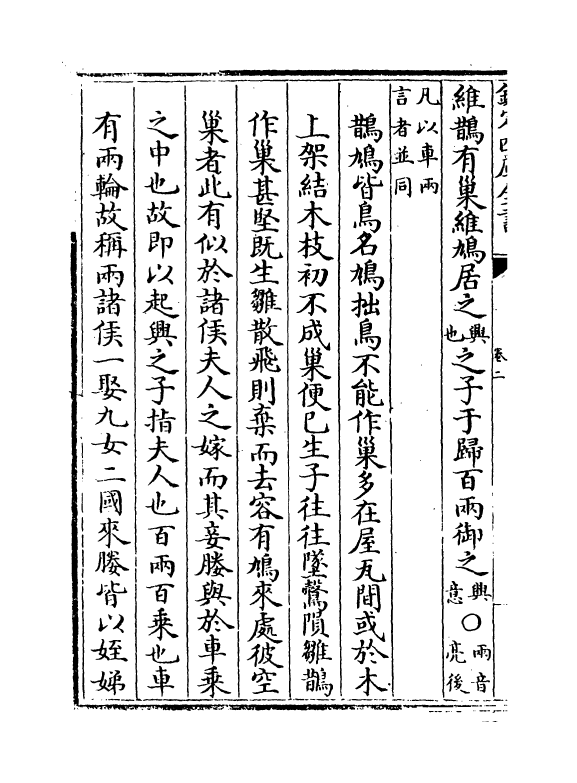 欽定四庫全書
卷二
維鵲有巢維鳩居之興也之子于歸百兩御之興意○兩音亮後
凡以車兩言者並同
鵲鳩皆鳥名鳩拙鳥不能作巢多在屋瓦間或於木
上架結木枝初不成巢便已生子往往墜鷇隕雛鵲
作巢甚堅既生雛散飛則棄而去容有鳩來處彼空
巢者此有似於諸侯夫人之嫁而其妾媵與於車乘
之中也故即以起興之子指夫人也百兩百乘也車
有兩輪故稱兩諸侯一娶九女二國來媵皆以姪娣